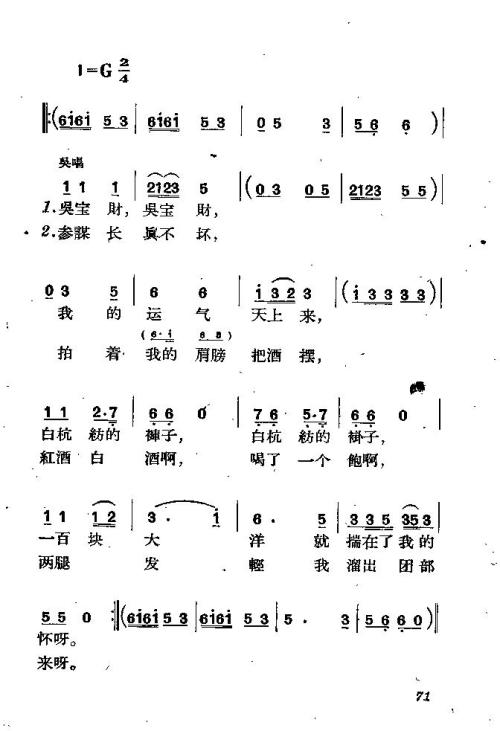 1=G 2/4
‖:(6161 5 3 | 6161 5 3 | 0 5 3 | 5 6 6 )|
吳唱
1 1 1 | 2123 5 |(0 3 0 5 | 2123 5 5 )|
1.吳宝財，吳宝財，
2.参謀长眞不坏，
0 3 5 | 6 6 | i 3 2 3 |( i 3 3 3 3 3 )|
我的运气天上来，
(6·i 6 8)
拍着我的肩膀把酒摆，
1 1 2·7 | 6 6 0 | 7 6 5·7 | 6 6 0 |
白杭紡的褲子，白杭紡的褂子，
紅酒白酒啊，喝了一个飽啊，
1 1 1 2 | 3 · i | 6 · 5 | 3 3 5 353 |
一百块大洋就揣在了我的
两腿发輕我溜出团部
5 5 0 :‖(6161 5 3 | 6161 5 3 | 5 · 3 | 5 6 6 0 )‖
怀呀。
来呀。
71